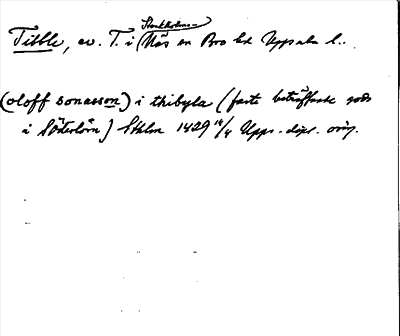 Stockholms-
Tibble, ev. T. i Näs sn Bro hd Uppsala l..
(oloff sonasson) i thibyla (faste beträffande gods
i Söderlövn) Sthlm 1429 14/4 Upps. dipl. orig.